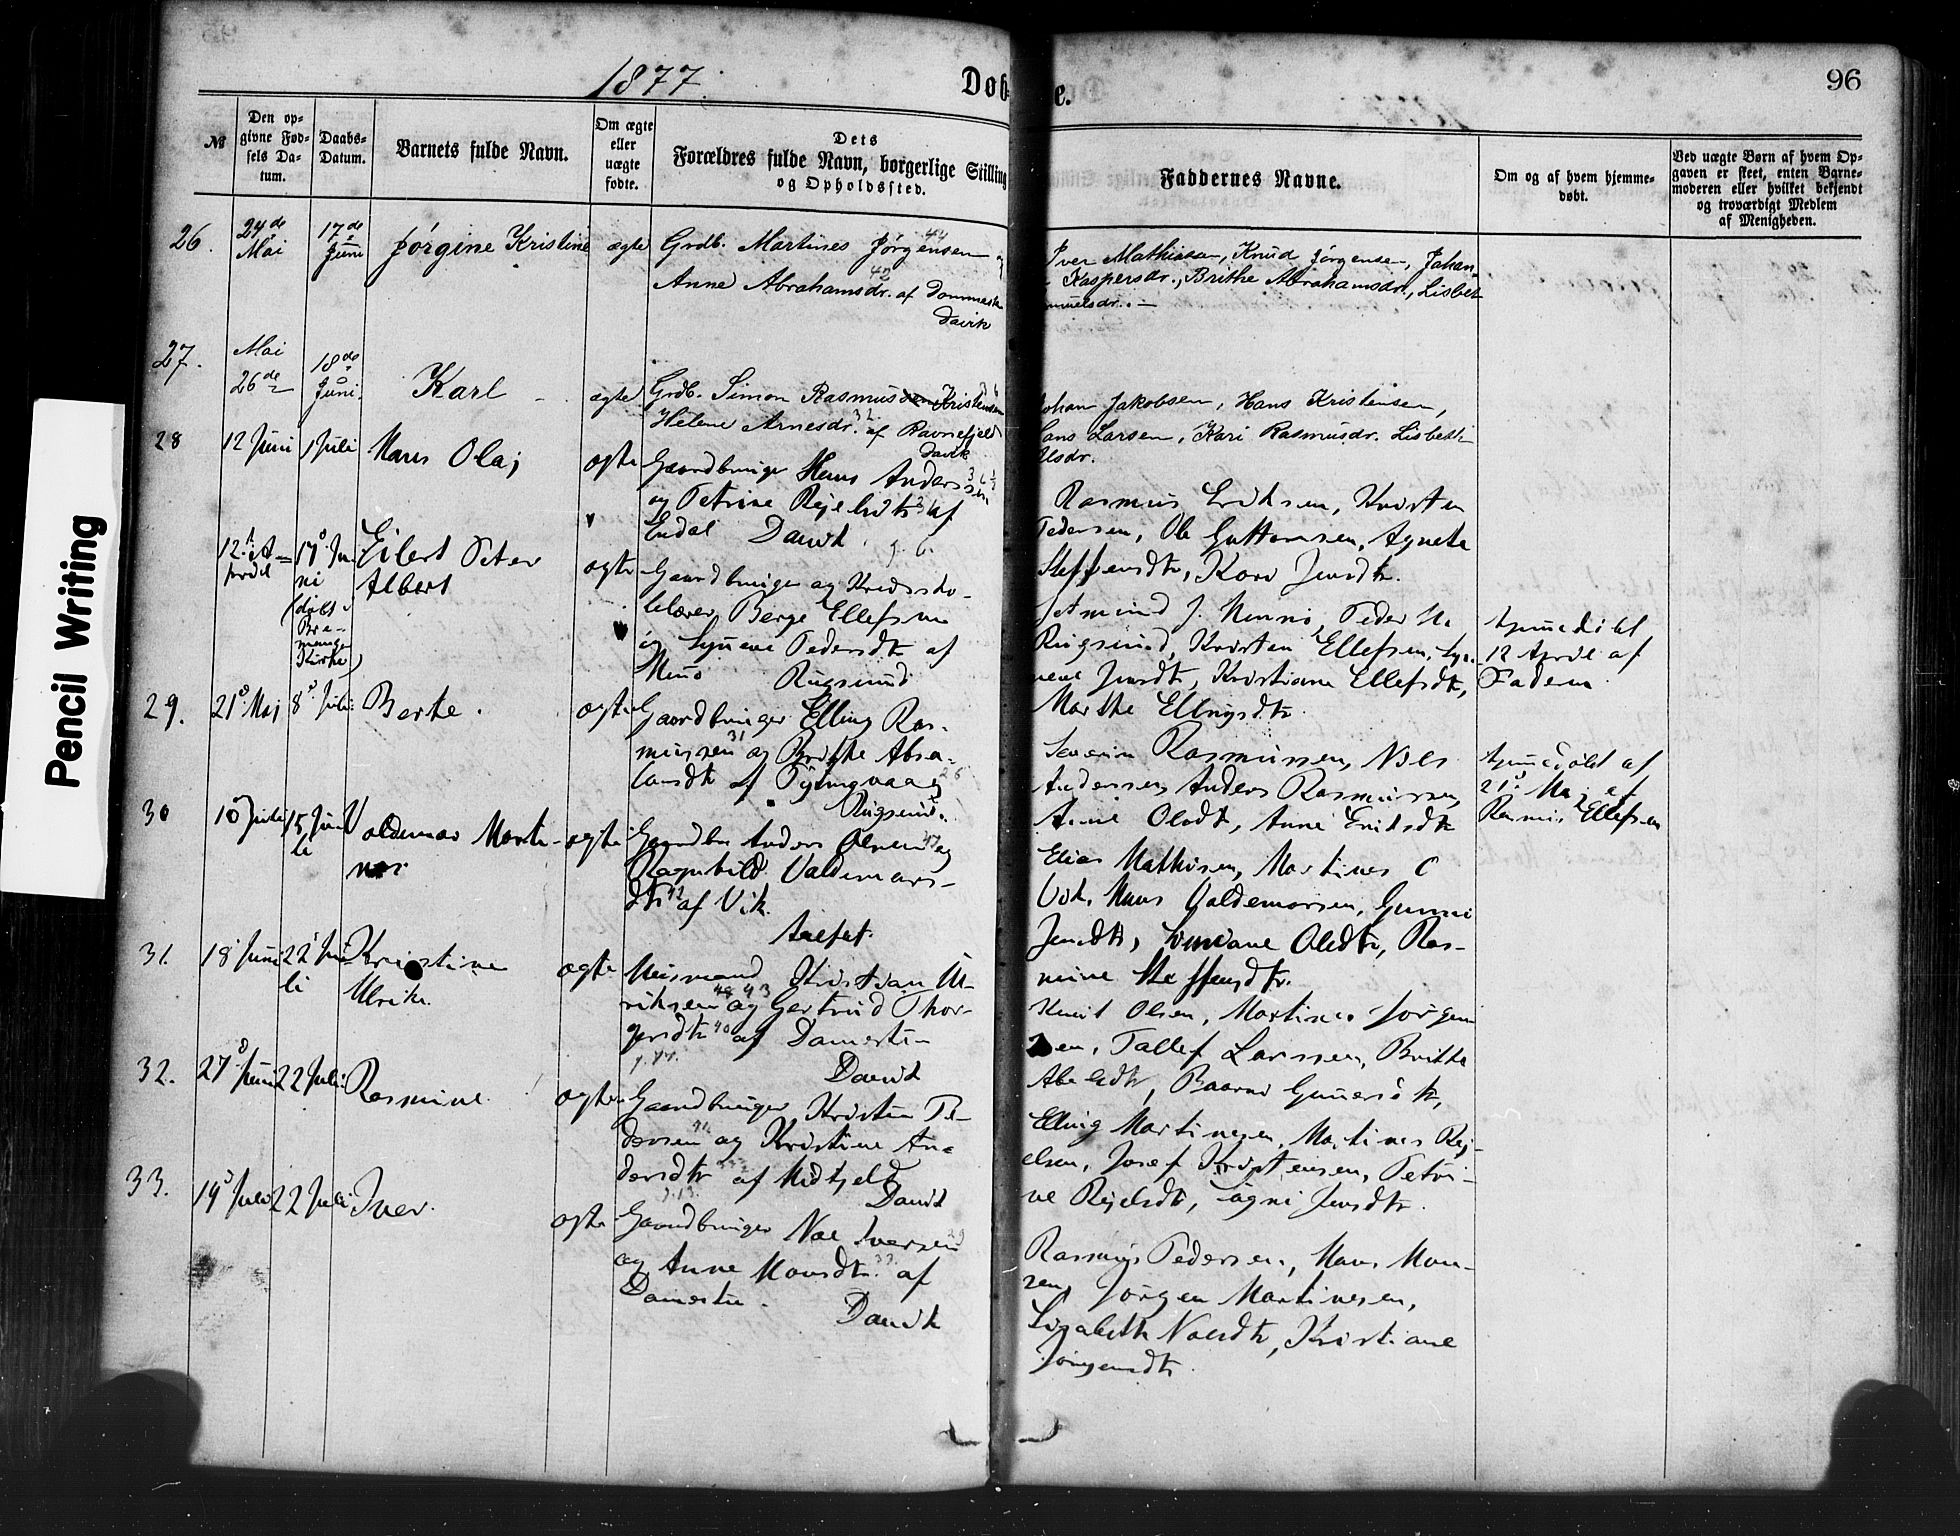 1877.
Døbte.
96
№
Den opgivne Fødsels Datum.
Daabs-Datum.
Barnets fulde Navn.
Om ægte eller uægte fødte.
Dets Forældres fulde Navn, borgerlige Stilling og Opholdssted.
Faddernes Navne.
Om og af hvem hjemmedøbt.
Ved uægte Børn af hvem Opgaven er skeet, enten Barnemoderen eller hvilket bekjendt og troværdigt Medlem af Menigheden.
26.
24de Mai
17de Juni
Jørgine Kristine
ægte
Grdb. Martines Jørgensen og
Anne Abrahamsdr. af
Davik
Iver Mathiassen, Knud Jørgensen, Johan-
Kaspersdr., Brithe Abrahamsdr., Lisbet
muelsdr. –
27.
Mai 26de
18de Juni
Karl
ægte
Grdb. Simon Rasmussen Kristensen
Helene Arnesdr. af Ravnefjeld
Davik
Johan Jakobsen, Hans Kristensen,
Hans Larsen, Kari Rasmusdr. Lisbeth
Elsdr.
28
12 Juni
1 Juli
Hans Olaj
ægte
Gaardbruger Hans Anderssen
og Petrine Rejelsdtr af
Endal Davik
Rasmus Eriksen, Kristen
Pedersen, Ole Guttormsen, Agnete
Steffensdtr, Kari Jensdtr.
12. April
17 Juni
(døbt i Bremanger Kirke)
Eilert Peter
Albert
ægte
Gaardbruger og Kredssko-
lelærer Berge Ellefsen
og Synneve Pedersdtr af
Rugsund
Peder
Rugsund, Kristen Ellefsen, Syn-
neve Jensdtr, Kristiane Ellefsdtr,
Marthe Ellingsdtr.
Hjemmedøbt
12 April af
Faderen
29.
21 Maj
8 Juli
Berte.
ægte
Gaardbruger Elling Ras-
mussen 31 og Brithe Absa-
lonsdtr af
Rugsund.
Severin Rasmussen, Nils
Andersen, Anders Rasmussen
Anne Olsdtr, Anne Eriksdtr
Hjemmedøbt af
21 Maj af
Rasmus Ellefsen
30
10 Juli
15 Juli
Valdemar Marti-
nus
ægte
Gaardbr Anders Olsen og
Ragnhild Valdemars-
dtr 42 af Vik.
Aalfot.
Elias Mathisen, Martines
Vik, Hans Valdemarsen, Gunni
Jensdtr, Oline Olsdtr, Ras-
mine Steffensdtr.
31.
18 Juni
22 Juli
Kristine
Ulrikke.
ægte
Huusmand Kristian Ul-
riksen og Gertrud Thor-
gersdtr 40 af Damesten
Davik
Knut Olsen, Martines Jørgen-
sen, Tollef Larssen, Brithe
Abelsdtr, Gunnersdtr,
32.
27 Juni
22 Juli
Rasmine
ægte
Gaardbruger Kristen Pe-
dersen og Kristine An-
dersdtr af Midtfjeld
Davik
Elling Martinesen, Martines Rej-
elsen, Josef Kristensen, Petri-
ne Rejelsdtr, Jensdtr.
33.
19 Juli
22 Juli
Iver.
ægte
Gaardbruger Noe Iversen
og Anne Monsdtr af
Damesten.
Davik
Rasmus Pedersen, Hans Mon-
sen, Jørgen Martinesen,
Lisabeth Noesdtr, Kristiane
Jørgensdtr.
Pencil Writing